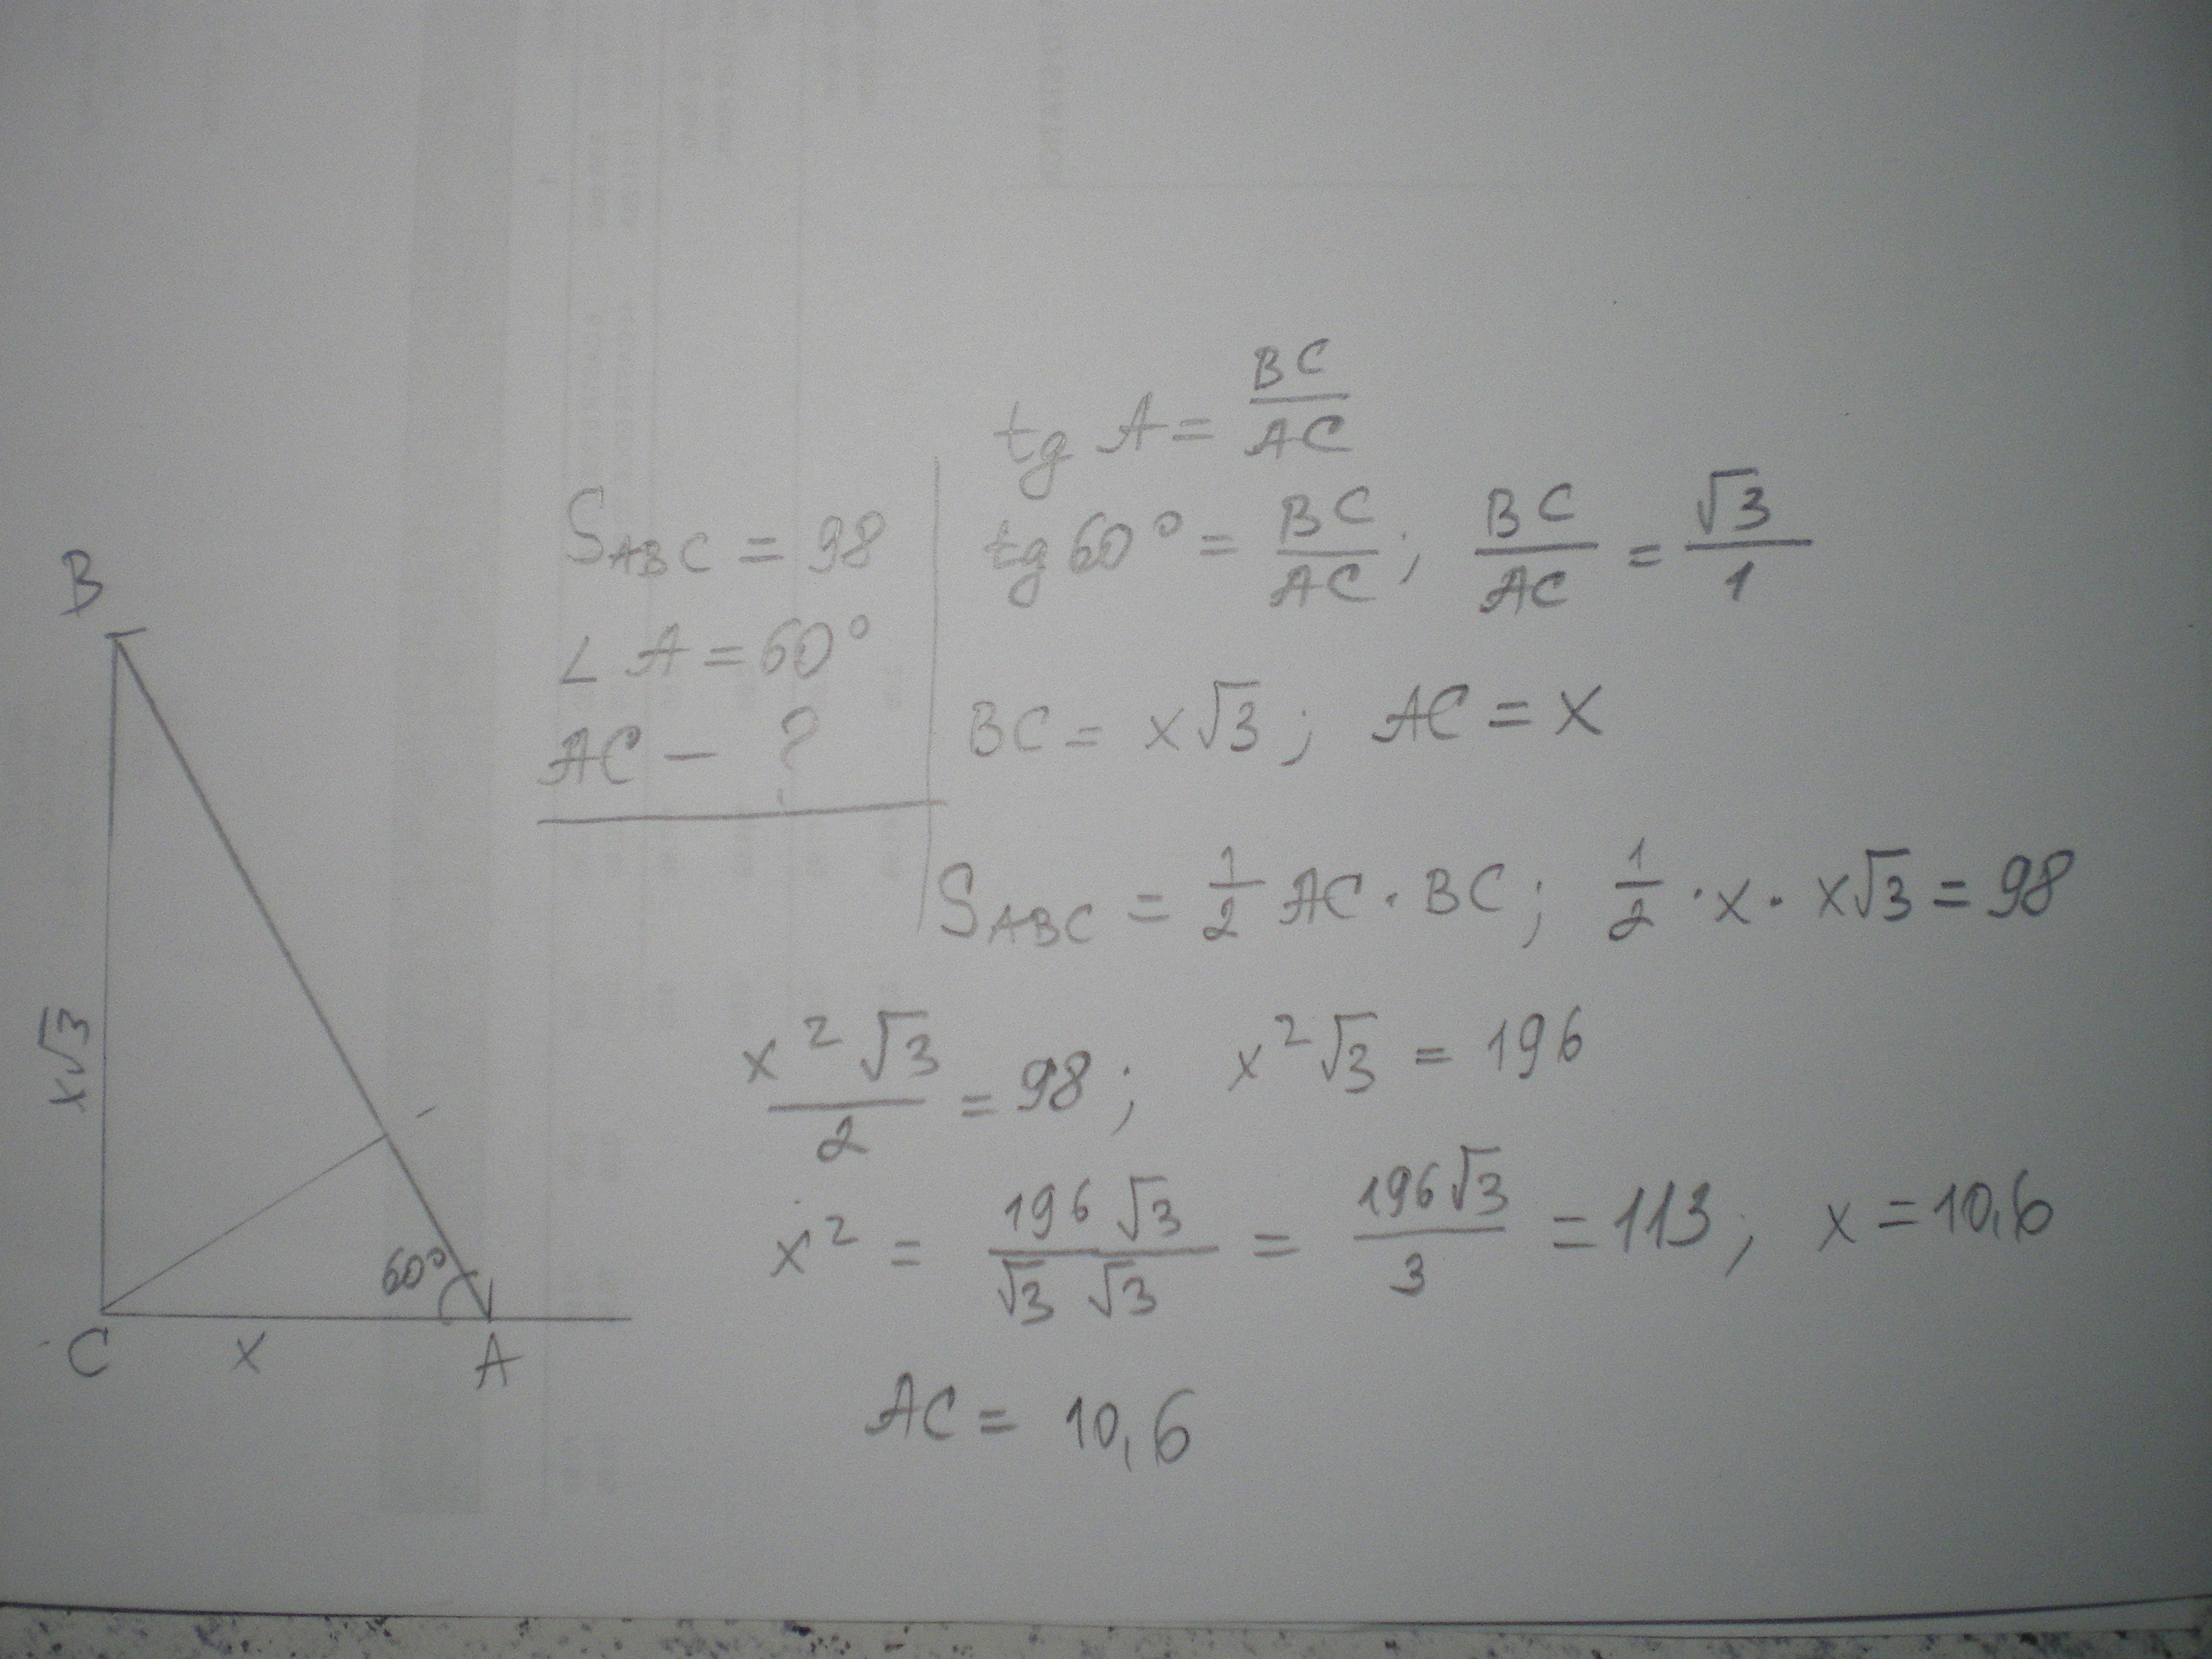 B
x√3
C
x
A
60°
S_ABC = 98
∠ A = 60°
AC — ?
tg A = BC/AC
tg 60° = BC/AC; BC/AC = √3/1
BC = x√3; AC = x
S_ABC = 1/2 AC · BC; 1/2 · x · x√3 = 98
x²√3/2 = 98; x²√3 = 196
x² = 196√3/√3 √3 = 196√3/3 = 113; x = 10,6
AC = 10,6